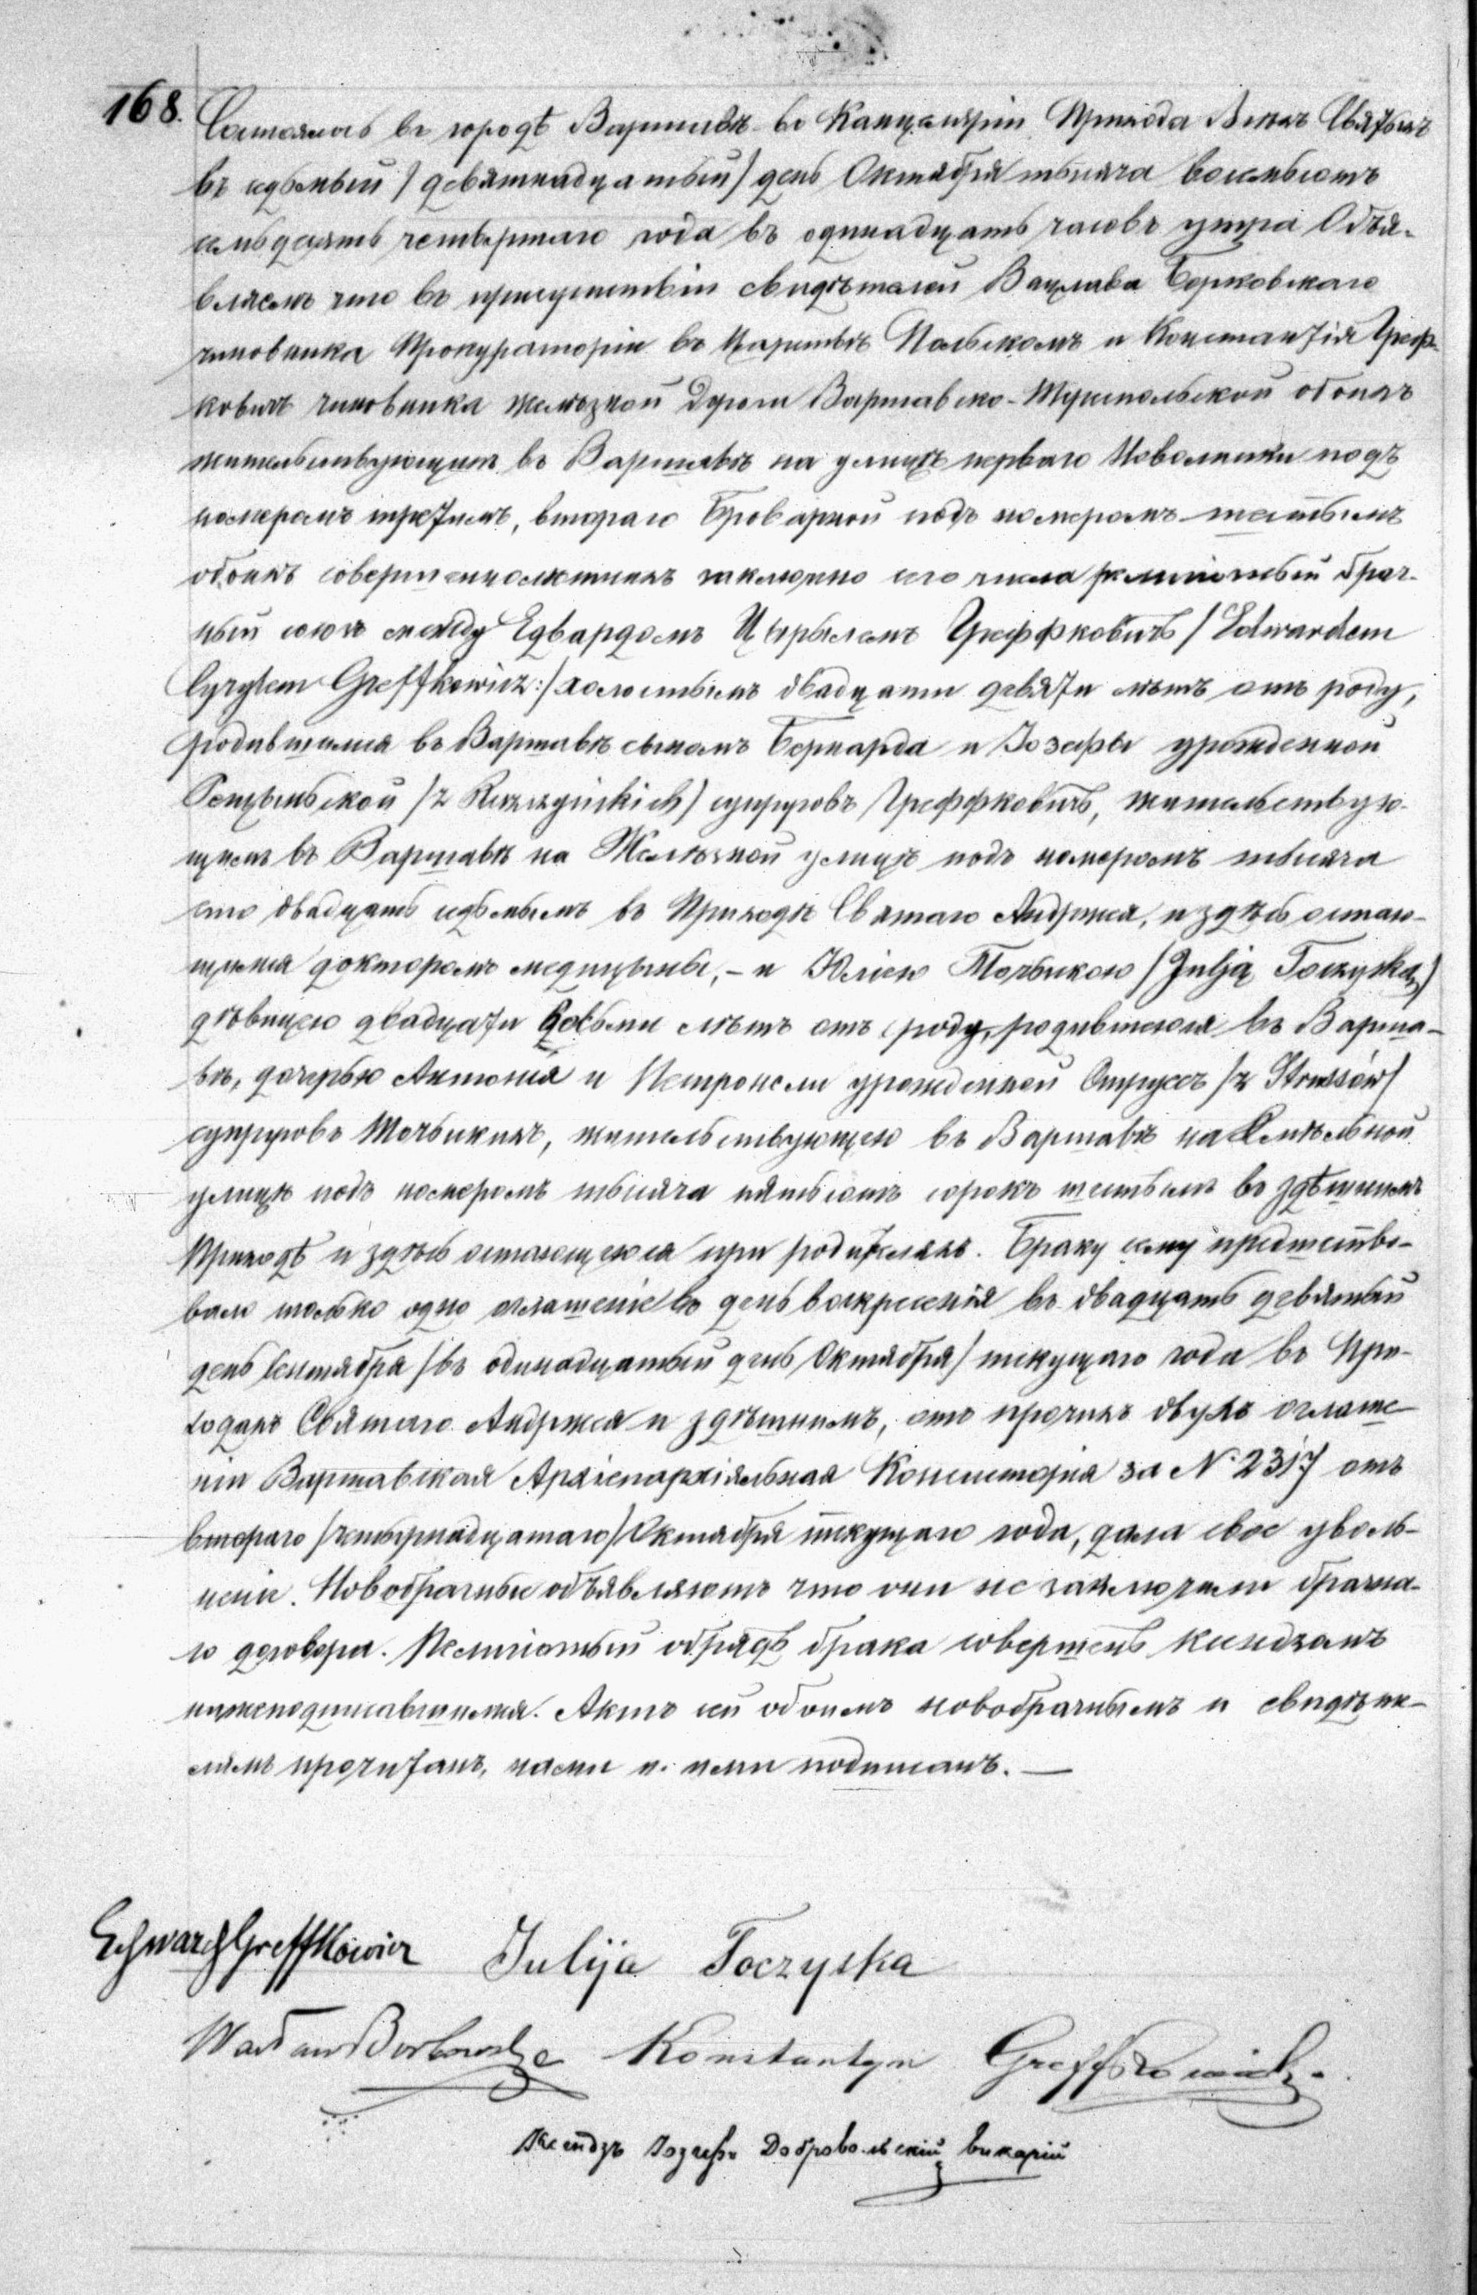 168. Состоялось въ городѣ Варшавѣ во Канцелярiи Прихода Всѣхъ Святыхъ
въ седьмый /девятнадцатый/ день Октября тысяча восемьсотъ
семьдесятъ четвертаго года въ одинадцать часовъ утра Объя-
вляемъ что въ присутствiи свидѣтелей Вацлава Борковскаго
чиновника Прокураторiи въ Царствѣ Польскомъ и Константiя Греф-
ковичъ чиновника желѣзной дороги Варшавско-Тереспольской обоихъ
жительствующихъ въ Варшавѣ на улицѣ перваго Новолипки подъ
номеромъ третимъ, втораго Броварной подъ номеромъ шестымъ
обоихъ совершеннолѣтнихъ заключено сего числа религiозный брач-
ный союзъ между Едвардомъ Цырылемъ Греффковичъ /Edwardem
Cyrylem Greffkowicz:/ холостымъ двадцати девяти лѣтъ отъ роду,
родившимся въ Варшавѣ сыномъ Бернарда и Iозефы урожденной
/z Ruszczyńskich/ супруговъ Греффковичъ, жительствую-
щимъ въ Варшавѣ на Желѣзной улицѣ подъ номеромъ тысяча
сто двадцать седьмымъ въ Приходѣ Святаго Андржея, и здѣсь остаю-
щимся докторомъ медицыны, - и Юлiею Точыскою /Julją Toczyską/
дѣвицею двадцати восьми лѣтъ отъ роду, родившеюся въ Варша-
вѣ, дочерью Антонiя и Петронели урожденной Струсъ /z Strussów/
супруговъ Точыскихъ, жительствующею въ Варшавѣ на Хмѣльной
улицѣ подъ номеромъ тысяча пятьсотъ сорокъ шестымъ во здѣшнемъ
Приходѣ и здѣсь остающеюся при родителяхъ. Браку сему предшество-
вало только одно оглашенiе во день воскресенiя въ двадцать девятый
день Сентября /въ одинадцатый день Октября/ текущаго года во При-
ходахъ Святаго Андржея и здѣшнимъ, отъ прочихъ двухъ оглаше-
нiи Варшавская Архiепархiяльная Консисторiя за N. 2317 отъ
втораго /четырнадцатаго/ Октября текущаго года, дала свое уволь-
ненiе. Новобрачные объявляютъ что они не заключали брачна-
го договора. Религiозный обрядъ брака совершенъ ксендзомъ
нижеподписавшимся. Актъ сей обоимъ новобрачнымъ и свидѣте-
лямъ прочитанъ, нами и ими подписанъ. —
Edward Greffkowicz Julija Toczyska
Wacław Borkowski Konstantyn Greffkowicz.
Ксендзъ Iозефъ Добровольскiй викарiй